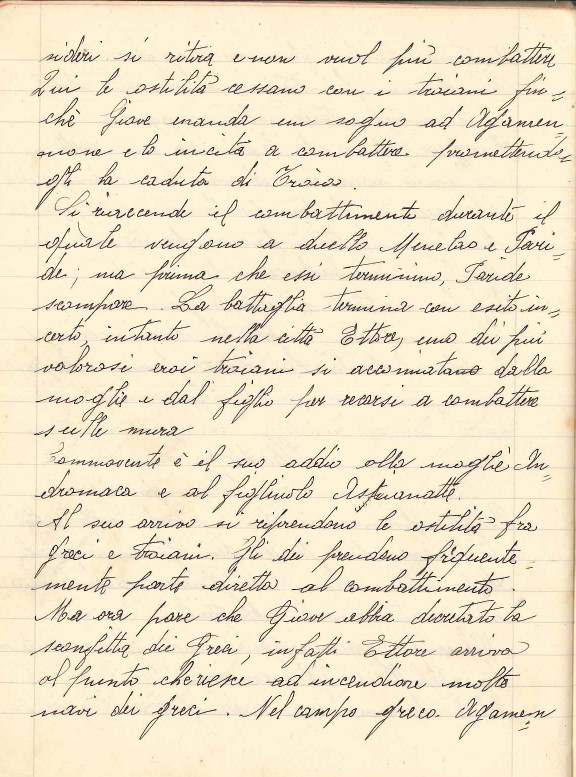 sideri si ritira e non vuol più combattere
Qui le ostilità cessano con i troiani fin=
chè Giove manda un sogno ad Agamen=
none e lo incita a combattere promettendo=
gli la caduta di Troia.
Si riaccende il combattimento durante il
quale vengono a duello Menelao e Pari=
de; ma prima che essi terminino, Paride
scompare. La battaglia termina con esito in=
certo, intanto nella città Ettore, uno dei più
valorosi eroi troiani si accomiatano dalla
moglie e dal figlio per recarsi a combattere
sulle mura
Commovente è il suo addio alla moglie An=
dromaca e al figliuolo Astianatte.
Al suo arrivo si riprendono le ostilità fra
greci e troiani. Gli dei prendono frequente=
mente parte diretta al combattimento.
Ma ora pare che Giove abbia decretato la
sconfitta dei Greci, infatti Ettore arriva
al punto che riesce ad incendiare molte
navi dei greci. Nel campo greco Agamen=